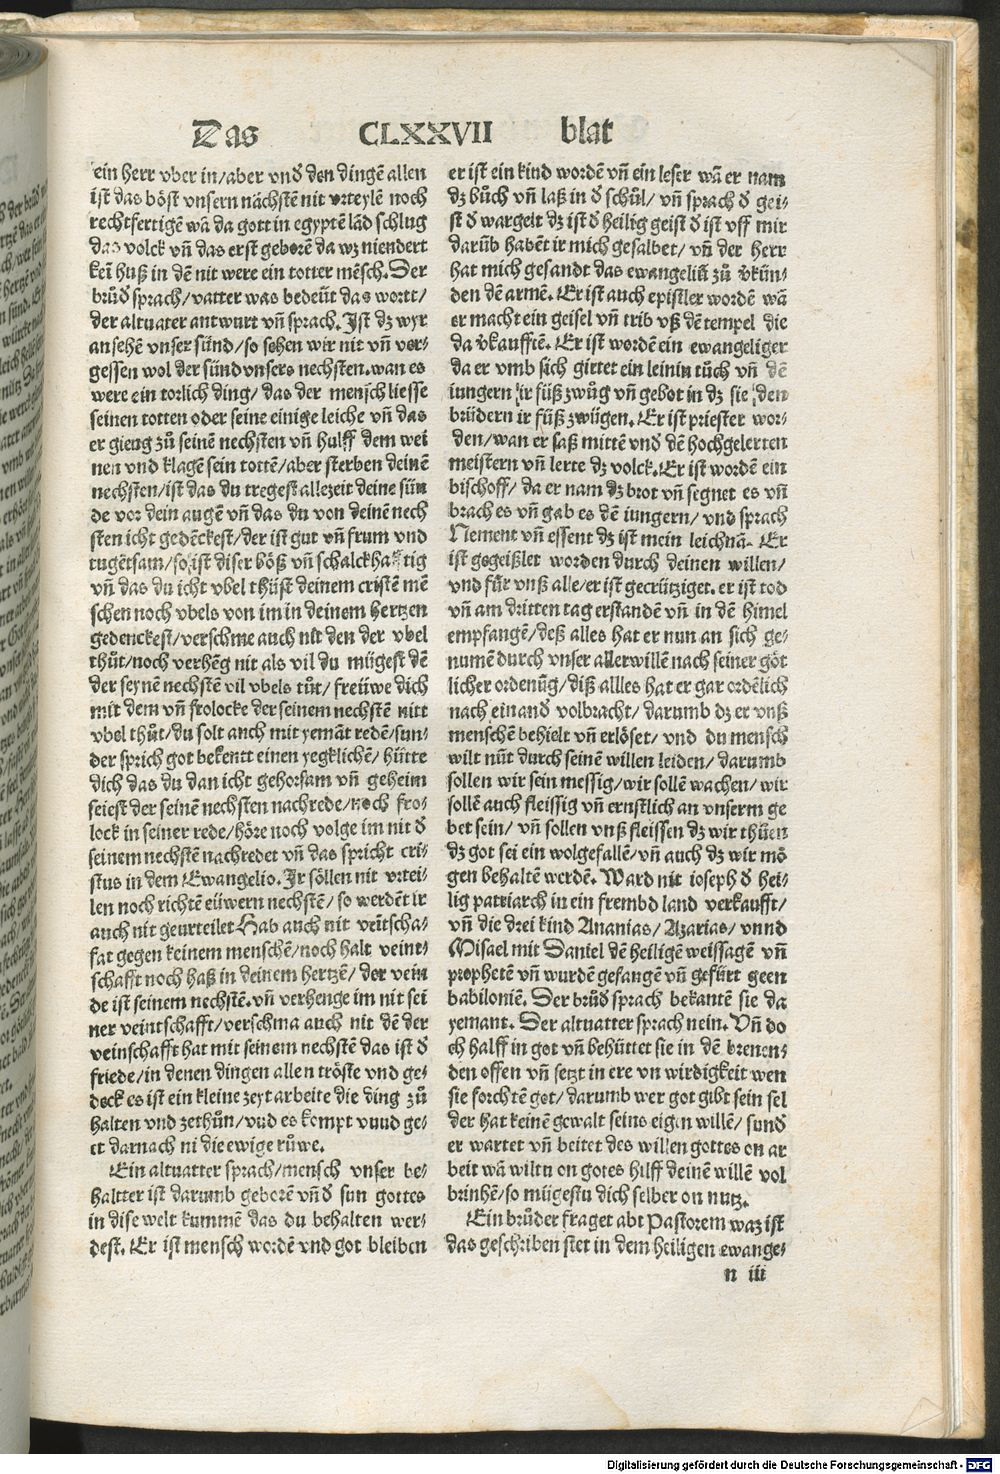 Das CLXXVII blat
ein herr vber in/aber vnd̄ den dingē allen
ist das böst vnsern nächstē nit vrteylē noch
rechtfertigē wā da gott in egyptē lād schlug
das volck vn̄ das erst geborē da wz niendert
kei̅ huß in dē nit were ein totter mēsch. Der
brůd̄ sprach/vatter was bedeüt das wortt/
der altuater antwurt vn̄ sprach. Ist dz wyr
ansehē vnser sünd/so sehen wir nit vn̄ ver⸗
gessen wol der sünd vnsers nechsten.wan es
were ein torlich ding/das der mensch liesse
seinen totten oder seine einige leiche vn̄ das
er gieng zů seinē nechsten vn̄ hulff dem wei
nen vnd klagē sein tottē/aber sterben deinē
nechsten/ist das du tregest allezeit deine sün
de vor dein augē vn̄ das du von deinē nech
sten icht gedēckest/der ist gut vn̄ frum vnd
tugētsam/so ist diser böß vn̄ schalckhafftig
vn̄ das du icht vbel thüst deinem cristē mē
schen noch vbels von im in deinem hertzen
gedenckest/verschme auch nit den der vbel
thůt/noch verhēg nit als vil du mügest dē
der seynē nechstē vil vbels tůt/freüwe dich
mit dem vn̄ frolocke der seinem nechstē nitt
vbel thůt/du solt auch mit yemāt redē/sun⸗
der sprich got bekentt einen yegklichē/hütte
dich das du dan icht gehorsam vn̄ geheim
seiest der seinē nechsten nachrede/noch fro⸗
lock in seiner rede/höre noch volge im nit d̄
seinem nechstē nachredet vn̄ das spricht cri⸗
stus in dem Ewangelio. Ir söllen nit vrtei⸗
len noch richtē eüwern nechstē/so werdēt ir
auch nit geurteilet Hab auch nit veītscha⸗
fat gegen keinem menschē/noch halt veint⸗
schafft noch haß in deinem hertzē/der vein
de ist seinem nechstē.vn̄ verhenge im nit sei
ner veintschafft/verschma auch nit dē der
veinschafft hat mit seinem nechstē das ist d̄
friede/in denen dingen allen tröste vnd ge⸗
deck es ist ein kleine zeyt arbeite die ding zů
halten vnd zethůn/vnd es kompt vnnd ge⸗
et darnach ni die ewige růwe.
Ein altuatter sprach/mensch vnser be⸗
haltter ist darumb geborē vn̄d̄ sun gottes
in dise welt kummē das du behalten wer⸗
dest. Er ist mensch wordē vnd got bleiben
er ist ein kind wordē vn̄ ein leser wā er nam
dz bůch vn̄ laß in d̄ schůl/ vn̄ sprach d̄ gei⸗
st d̄ wargelt dz ist d̄ heilig geist d̄ ist vff mir
darūb habēt ir mich gesalbet/ vn̄ der herr
hat mich gesandt das ewangeliū zů v̄kün⸗
den dē armē. Er ist auch epistler wordē wā
er macht ein geisel vn̄ trib vß dē tempel die
da v̄kauffiē. Er ist wordē ein ewangeliger
da er vmb sich girtet ein leinin tůch vn̄ dē
iungern ir füß zwůg vn̄ gebot in dz sie den
brüdern ir füß zwügen. Er ist priester wor⸗
den/wan er saß mittē vnd dē hochgelerten
meistern vn̄ lerte dz volck. Er ist wordē ein
bischoff/ da er nam dz brot vn̄ segnet es vn̄
brach es vn̄ gab es dē iungern/ vnd sprach
Nement vn̄ essent dz ist mein leichnā. Er
ist gegeißlet worden durch deinen willen/
vnd für vnß alle/er ist gecrütziget. er ist tod
vn̄ am dritten tag erstandē vn̄ in dē himel
empfangē/deß alles hat er nun an sich ge⸗
numē durch vnser allerwillē nach seiner göt
licher ordenūg/diß allles hat er gar ordēlich
nach einand̄ volbracht/ darumb dz er vnß
menschē behielt vn̄ erlöset/ vnd du mensch
wilt nüt durch seinē willen leiden/ darumb
sollen wir sein messig/wir sollē wachen/wir
sollē auch fleissig vn̄ ernstlich an vnserm ge
bet sein/ vn̄ sollen vnß fleissen dz wir thüen
dz got sei ein wolgefallē/vn̄ auch dz wir mö
gen behaltē werdē. Ward nit ioseph d̄ hei⸗
lig patriarch in ein frembd land verkaufft/
vn̄ die drei kind Ananias/ Azarias/ vnnd
Misael mit Daniel dē heiligē weissagē vn̄
prophetē vn̄ wurdē gefangē vn̄ gefürt geen
babiloniē. Der brůd̄ sprach bekantē sie da
yemant. Der altuatter sprach nein. Vn̄ do
ch halff in got vn̄ behüttet sie in dē brenen⸗
den offen vn̄ setzt in ere vn wirdigkeit wen
sie forchtē got/ darumb wer got gibt sein sel
der hat keinē gewalt seins eigen willē/ sund̄
er wartet vn̄ beitet des willen gottes on ar
beit wā wiltu on gotes hilff deinē willē vol
brinhē/so mügestu dich selber on nutz.
Ein brůder fraget abt Pastorem waz ist
das geschriben stet in dem heiligen ewange⸗
n iii
Digitalisierung gefördert durch die Deutsche Forschungsgemeinschaft - DFG